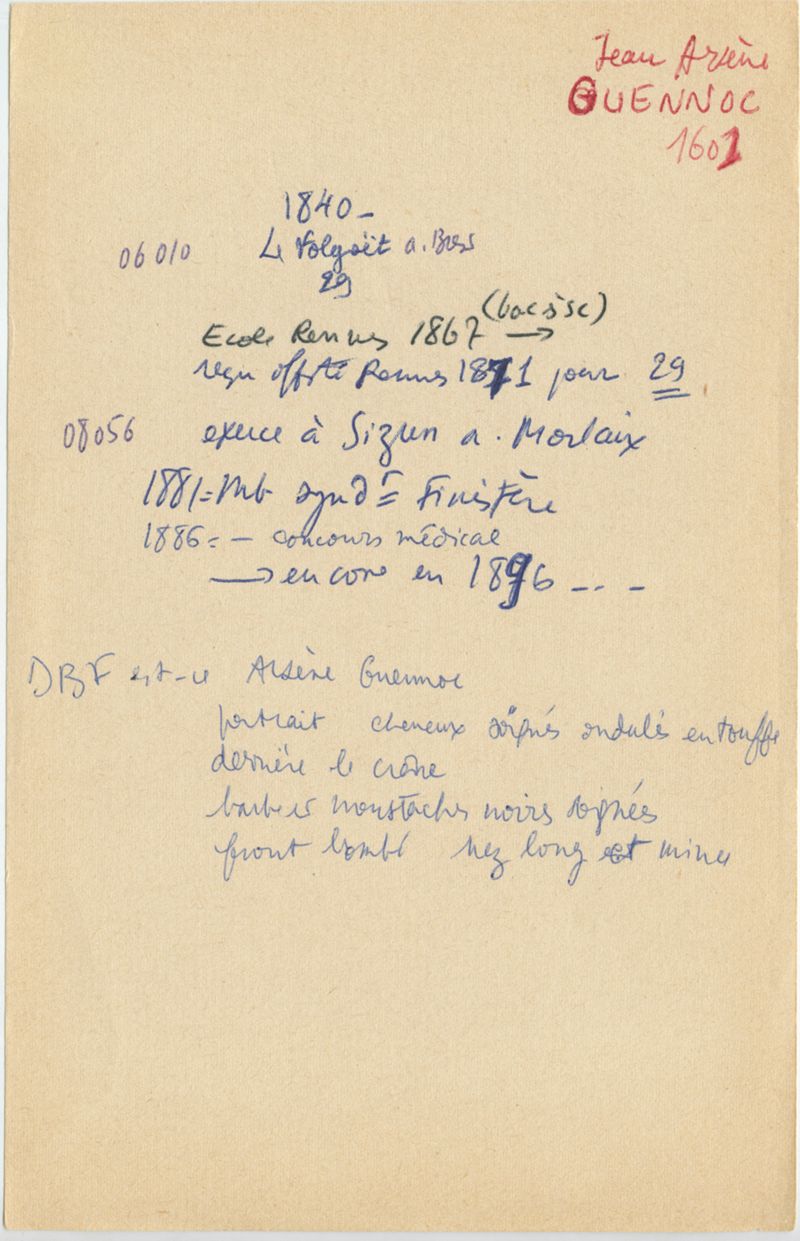 Jean Arsène
GUENNOC
1601
1840_
06010 Le Folgoët a. Brest
29
Ecole Rennes 1867 (bac ès sc) →
reçu offté Rennes 1871 pour 29
08056 exerce à Sizun a. Morlaix
1881 = Mb synd Finistère
1886 = — concours médical
→ encore en 1896 _ . . _
DBF est-ce Arsène Guennoc
portrait cheveux soignés ondulés en touffe
derrière le crâne
barbe et moustaches noires soignées
front bombé nez long et mince